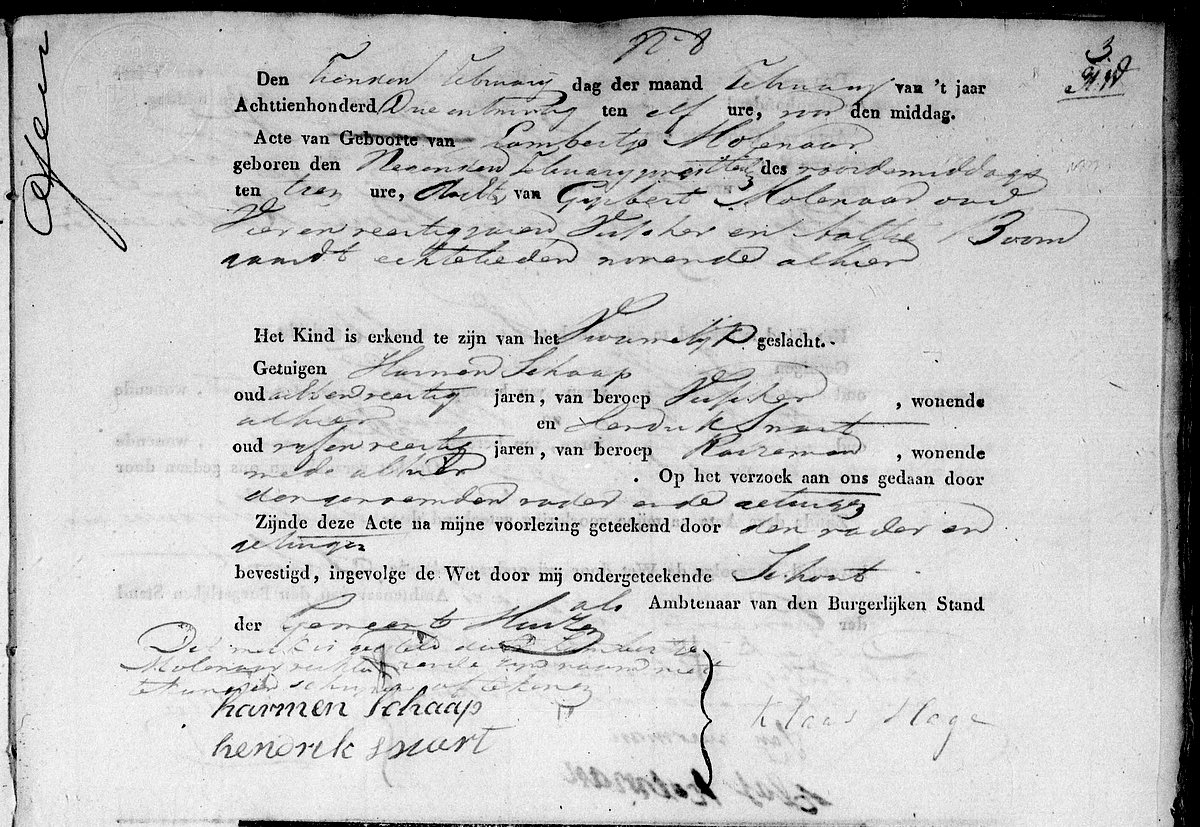 N.º 8
3
Den tienden february dag der maand February van 't jaar
Achttienhonderd Drie en twintig ten elf ure, voor den middag.
Acte van Geboorte van Lambertje Molenaar
geboren den Negenden february des voordemiddags
ten tien ure, docht. van Gijsbert Molenaar oud
Vier en veertig jaren, Visscher en Aaltje Boom
echtelieden wonende alhier
Het Kind is erkend te zijn van het Vrouwelijk geslacht.
Getuigen Harmen Schaap
oud acht en veertig jaren, van beroep Visscher, wonende
alhier en Hendrik Snuert
oud vijf en veertig jaren, van beroep, wonende
mede alhier. Op het verzoek aan ons gedaan door
den genoemden vader ende getuigen
Zijnde deze Acte na mijne voorlezing geteekend door den vader en
getuigen
bevestigd, ingevolge de Wet door mij ondergeteekende Schout
als Ambtenaar van den Burgerlijken Stand
der Gemeente Huizen
Dit merk is gesteld door
Molenaar verklarende zijn naam niet
te kunnen schrijven of tekenen
harmen schaap
hendrik snuert
Klaas Hage